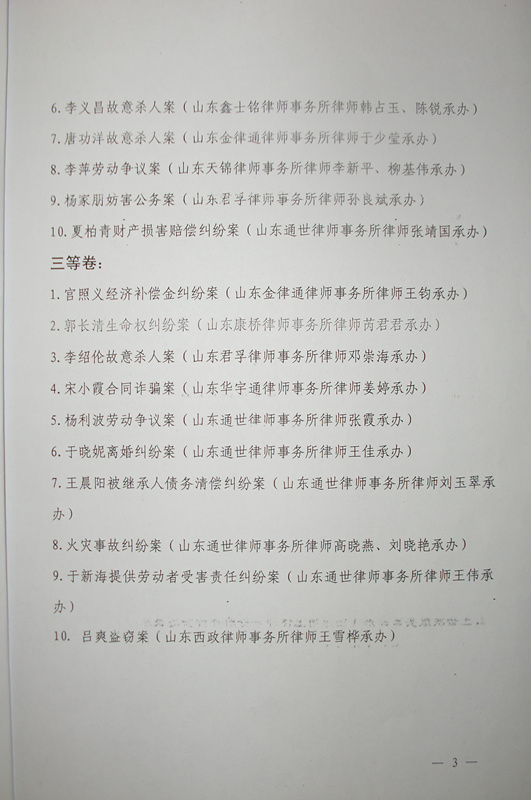 6.李义昌故意杀人案（山东鑫士铭律师事务所律师韩占玉、陈锐承办）
7.唐功洋故意杀人案（山东金律通律师事务所律师于少莹承办）
8.李萍劳动争议案（山东天锦律师事务所律师李新平、柳基伟承办）
9.杨家朋妨害公务案（山东君孚律师事务所律师孙良斌承办）
10.夏柏青财产损害赔偿纠纷案（山东通世律师事务所律师张靖国承办）
三等卷：
1.官照义经济补偿金纠纷案（山东金律通律师事务所律师王钧承办）
2.郭长清生命权纠纷案（山东康桥律师事务所律师芮君君承办）
3.李绍伦故意杀人案（山东君孚律师事务所律师邓崇海承办）
4.宋小霞合同诈骗案（山东华宇通律师事务所律师姜婷承办）
5.杨利波劳动争议案（山东通世律师事务所律师张霞承办）
6.于晓妮离婚纠纷案（山东通世律师事务所律师王佳承办）
7.王晨阳被继承人债务清偿纠纷案（山东通世律师事务所律师刘玉翠承
办）
8.火灾事故纠纷案（山东通世律师事务所律师高晓燕、刘晓艳承办）
9.于新海提供劳动者受害责任纠纷案（山东通世律师事务所律师王伟承
办）
10. 吕爽盗窃案（山东西政律师事务所律师王雪桦承办）
— 3 —